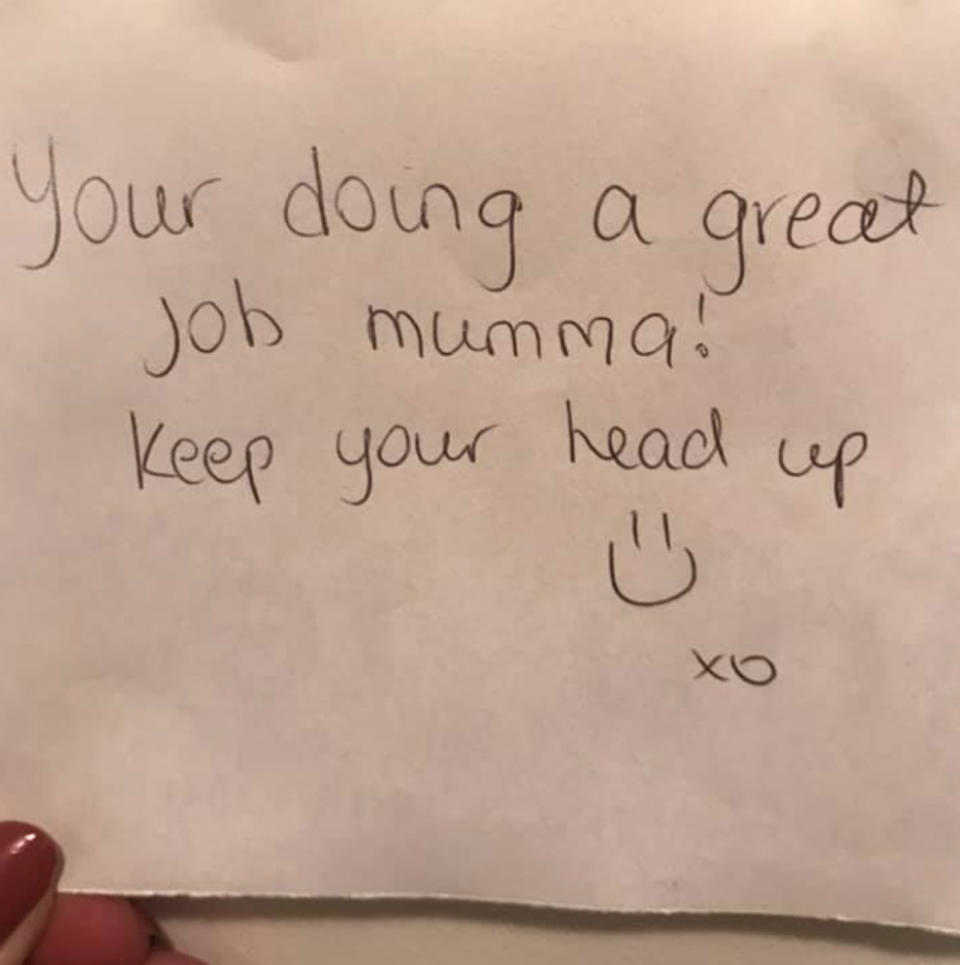 Your doing a great
job mumma!
Keep your head up
xo